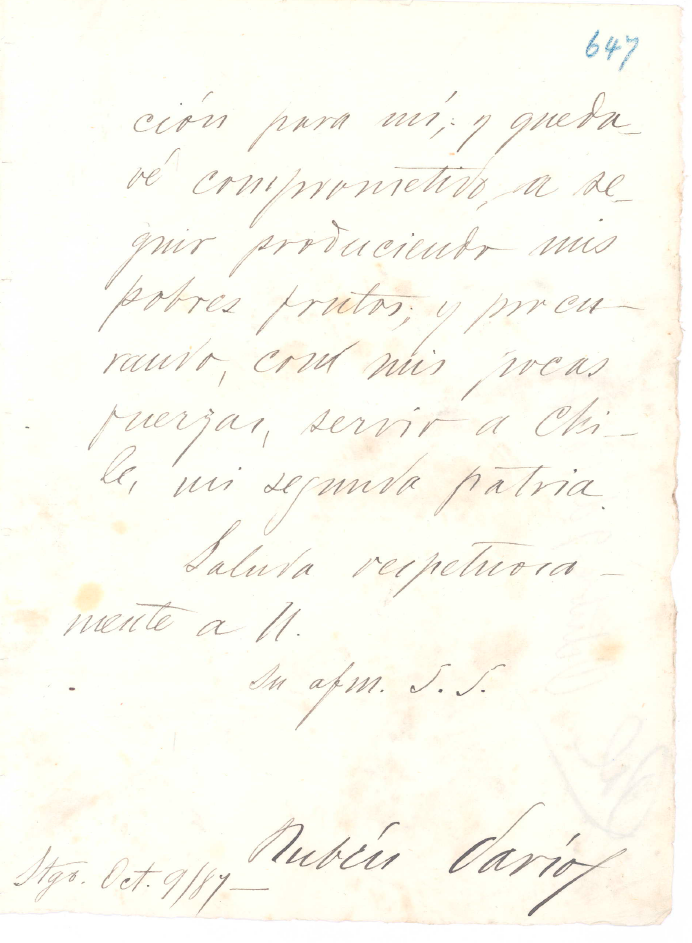 647
ción para mí; y queda-
ré comprometido, a se-
guir produciendo mis
pobres frutos; y procu-
rando, con mis pocas
fuerzas, servir a Chi-
le, mi segunda patria.
Saluda respetuosa-
mente a U.
Su afm. S. S.
Rubén Darío
Stgo. Oct. 9/87—